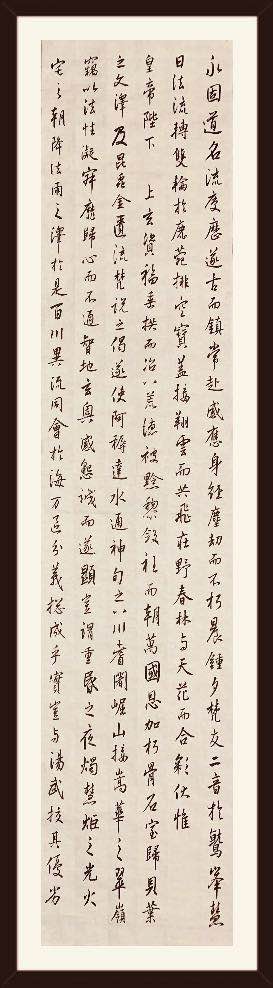 永固道名流慶歷遂古而鎮常赴感應身經塵劫而不朽晨鍾夕梵交二音於鷲峯慧
日法流轉雙輪於鹿菀排空寶蓋接翔雲而共飛莊野春林与天花而合彩伏惟
皇帝陛下 上玄資福垂拱而治八荒德被黔黎斂衽而朝萬國恩加朽骨石室歸貝葉
之文澤及昆虫金匱流梵說之偈遂使阿耨達水通神甸之八川耆闍崛山接嵩華之翠嶺
竊以法性凝寂靡歸心而不通智地玄奧感懇誠而遂顯豈謂重昏之夜燭慧炬之光火
宅之朝降法雨之澤於是百川異流同會於海万區分義捴成乎實豈与湯武校其優劣